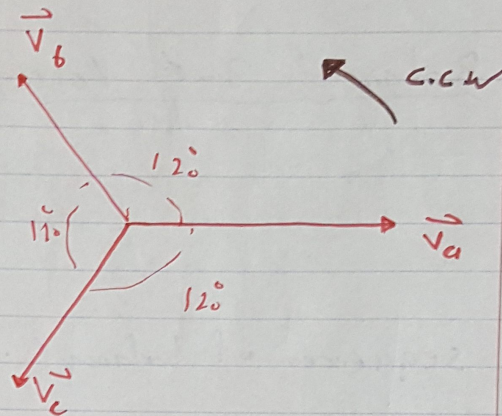 V⃗b
C.C.W
120°
110°
V⃗a
120°
V⃗c